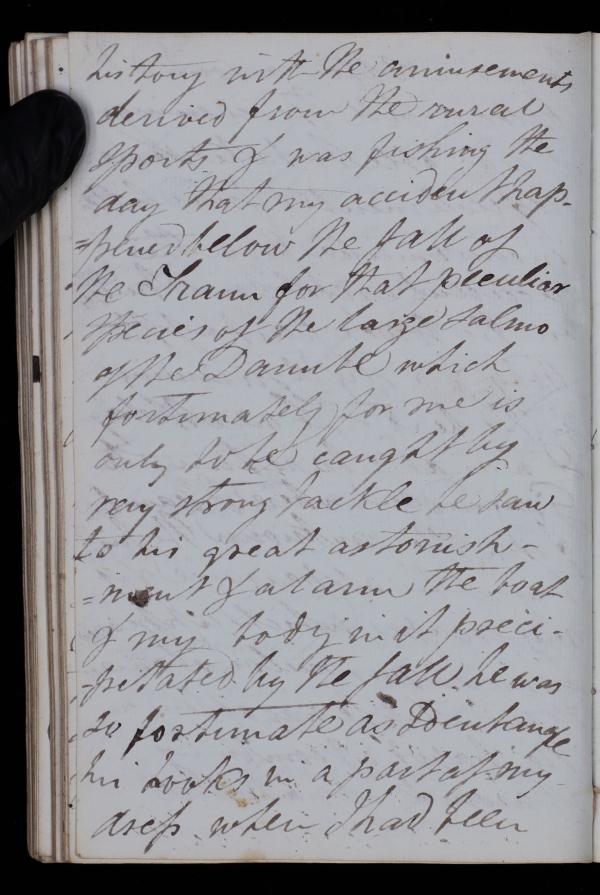 history with the amusements
derived from the rural
sports & was fishing the
day that my accident hap-
=pened below the fall of
the Traun for that peculiar
species of the large salmo
of the Danube which
fortunately for me is
only to be caught by
very strong tackle he saw
to his great astonish-
=ment & alarm the boat
& my body in it preci-
=pitated by the fall he was
so fortunate as to entangle
his hooks in a part of my
dress when I had been